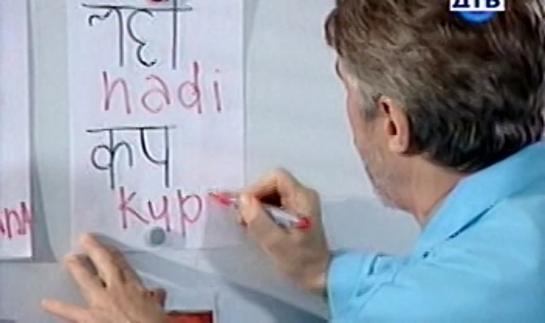 ДТВ
नदी
nadi
कप
kup